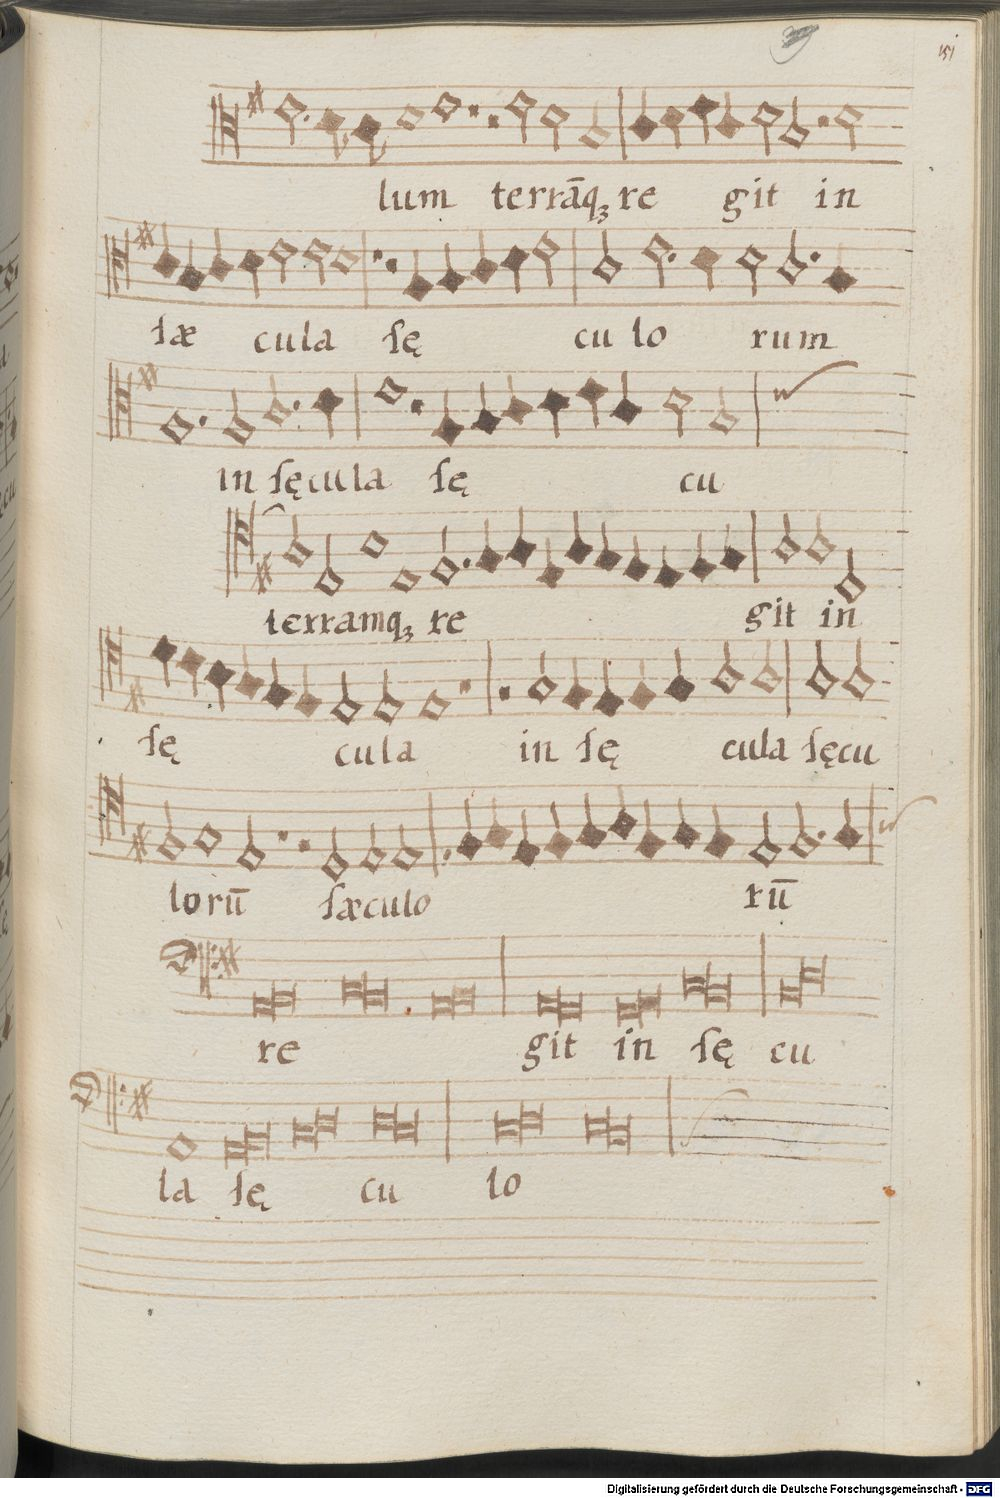 151
lum terrāqꝫ re git in
sæ cula sę cu lo rum
in sęcula sę cu
terramqꝫ re git in
sę cula in sę cula sęcu
lorū sæculo rū
re git in sę cu
la sę cu lo
Digitalisierung gefördert durch die Deutsche Forschungsgemeinschaft - DFG